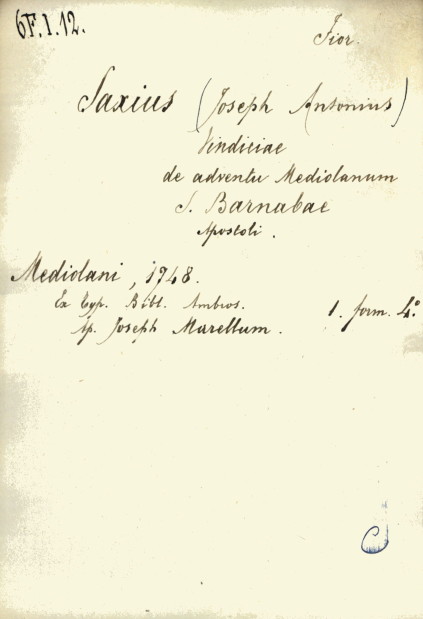 6F.I.12.
Fior.
Saxius (Joseph Antonius)
Vindiciae
de adventu Mediolanum
S. Barnabae
Apostoli.
Mediolani, 1748.
Ex Typ. Bibl. Ambros.
ap. Joseph Marellum. 1. form. 4.°